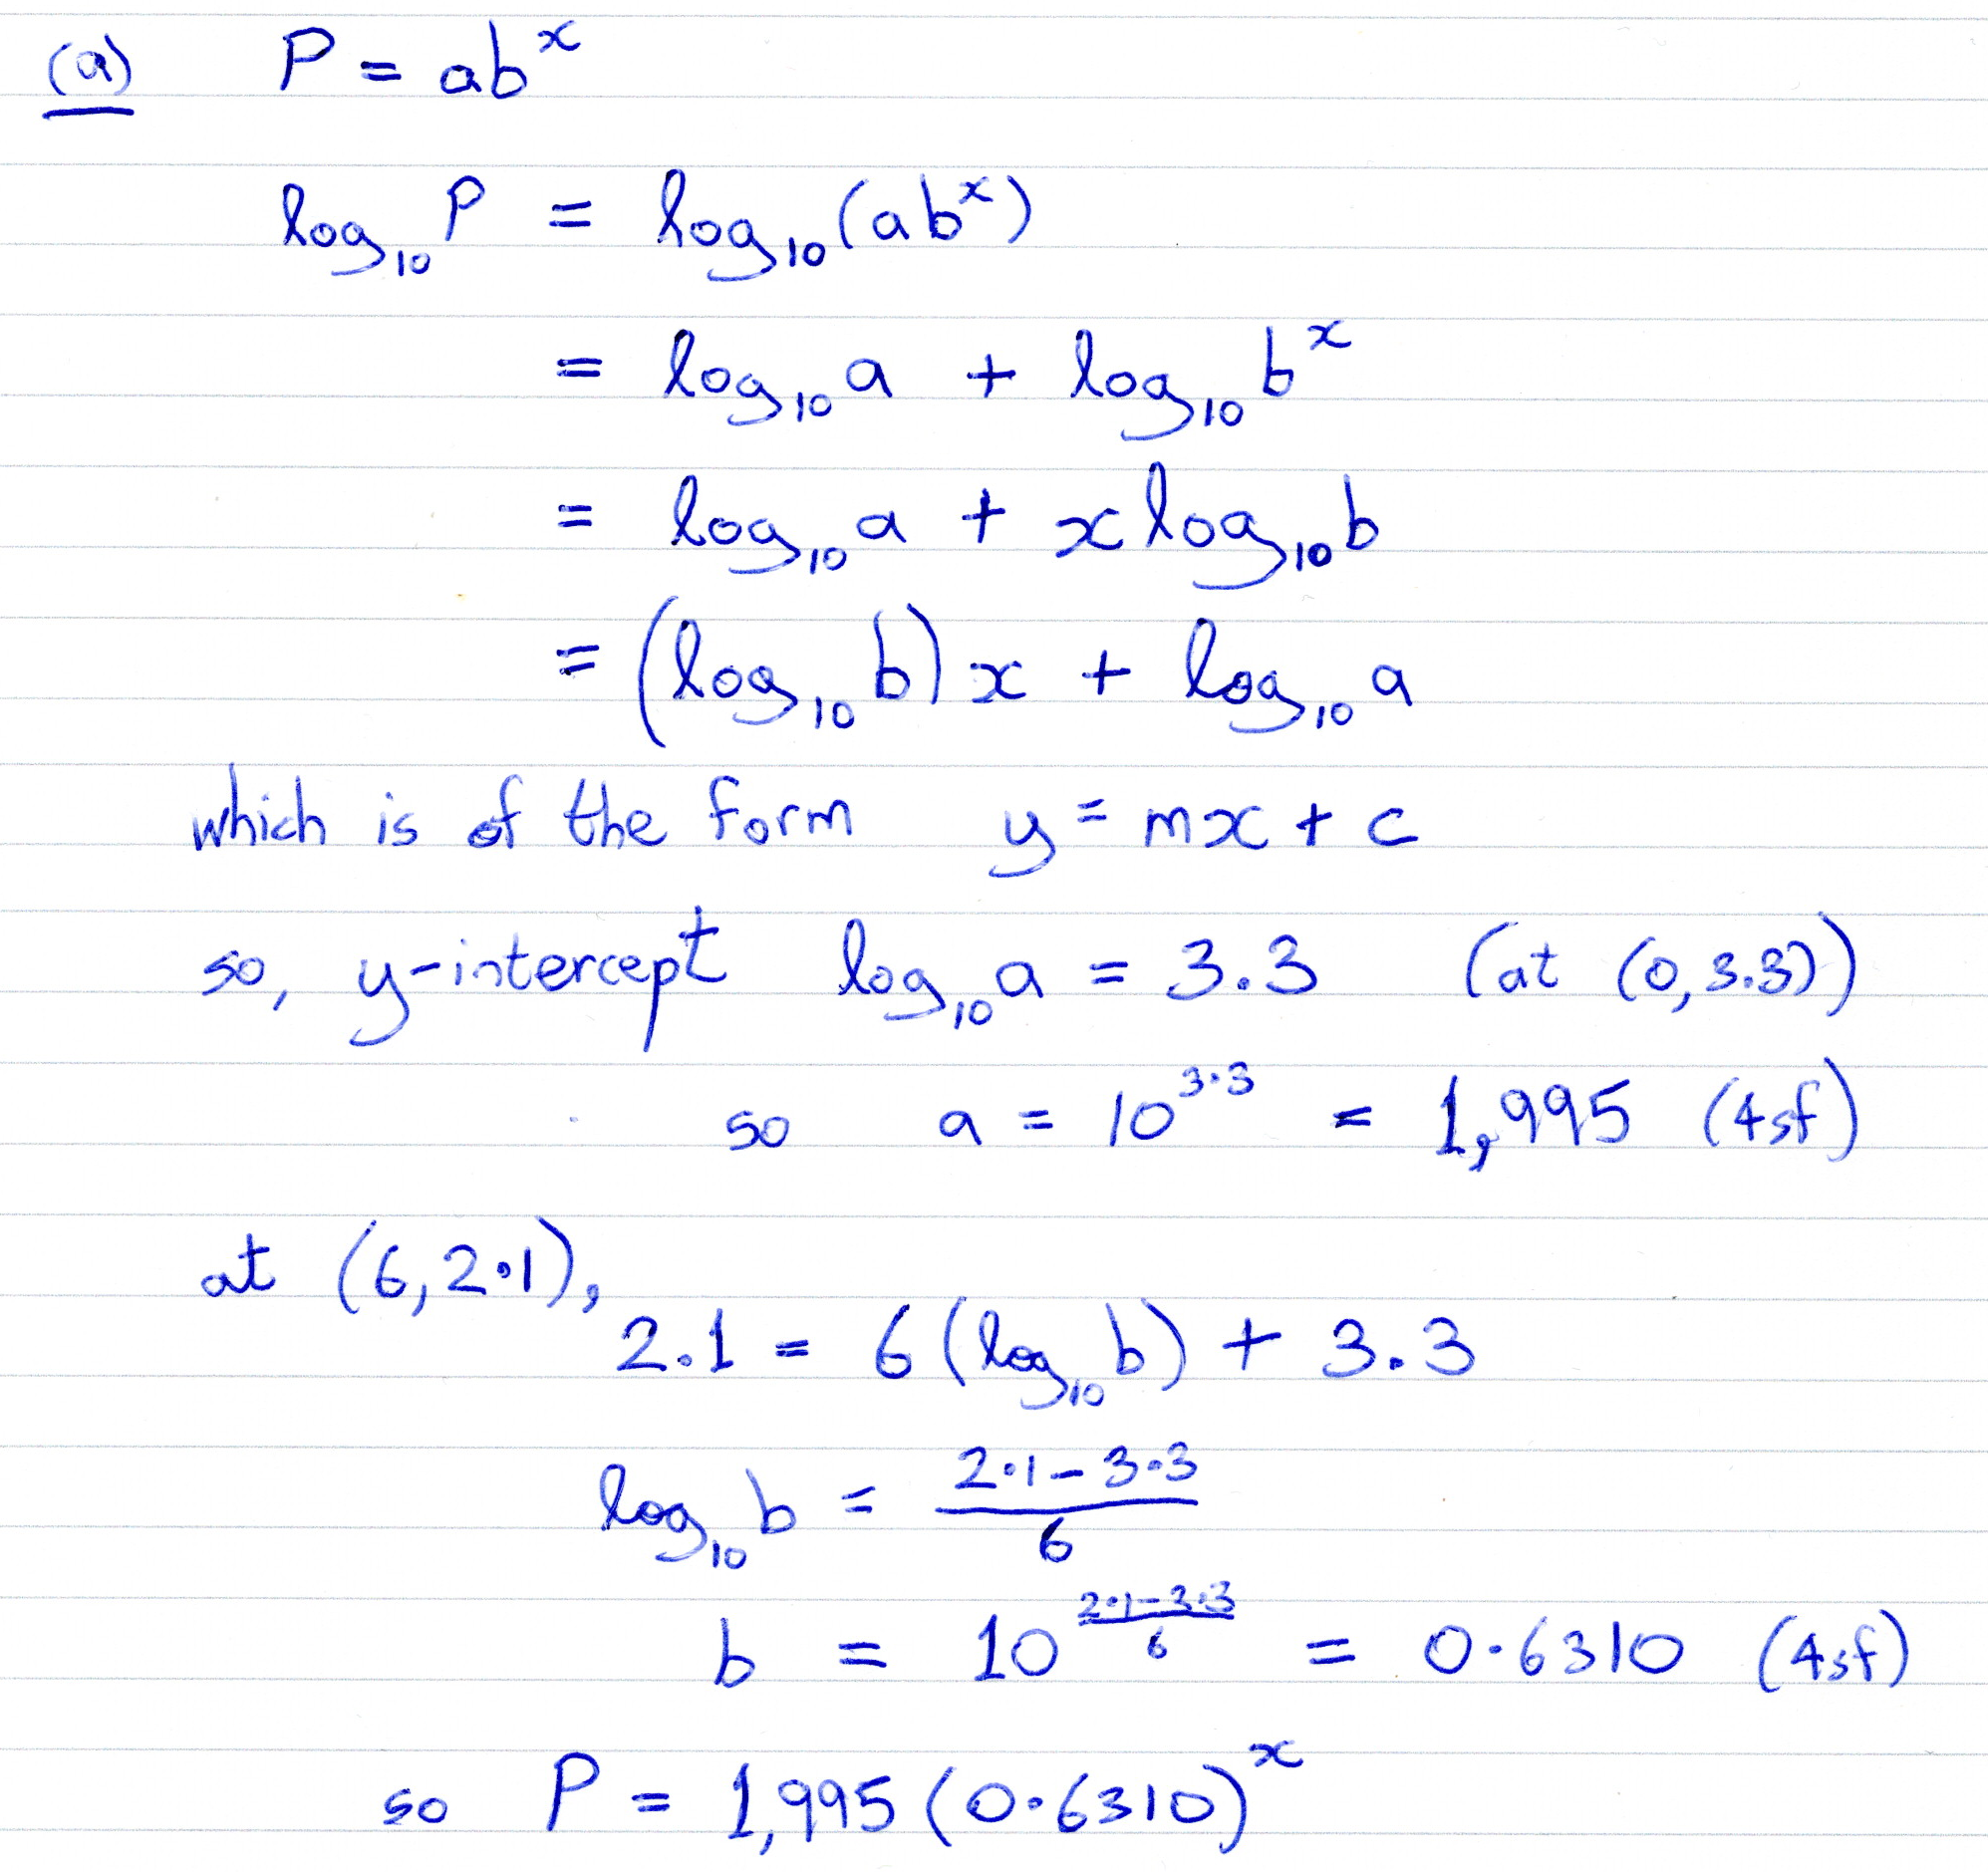 (a) P = ab^x
log₁₀ P = log₁₀ (ab^x)
= log₁₀ a + log₁₀ b^x
= log₁₀ a + x log₁₀ b
= (log₁₀ b) x + log₁₀ a
which is of the form y = mx + c
so, y-intercept log₁₀ a = 3.3 (at (0, 3.3))
so a = 10^3.3 = 1,995 (4sf)
at (6, 2.1),
2.1 = 6 (log₁₀ b) + 3.3
log₁₀ b = (2.1 - 3.3)/6
b = 10^((2.1 - 3.3)/6) = 0.6310 (4sf)
so P = 1,995 (0.6310)^x